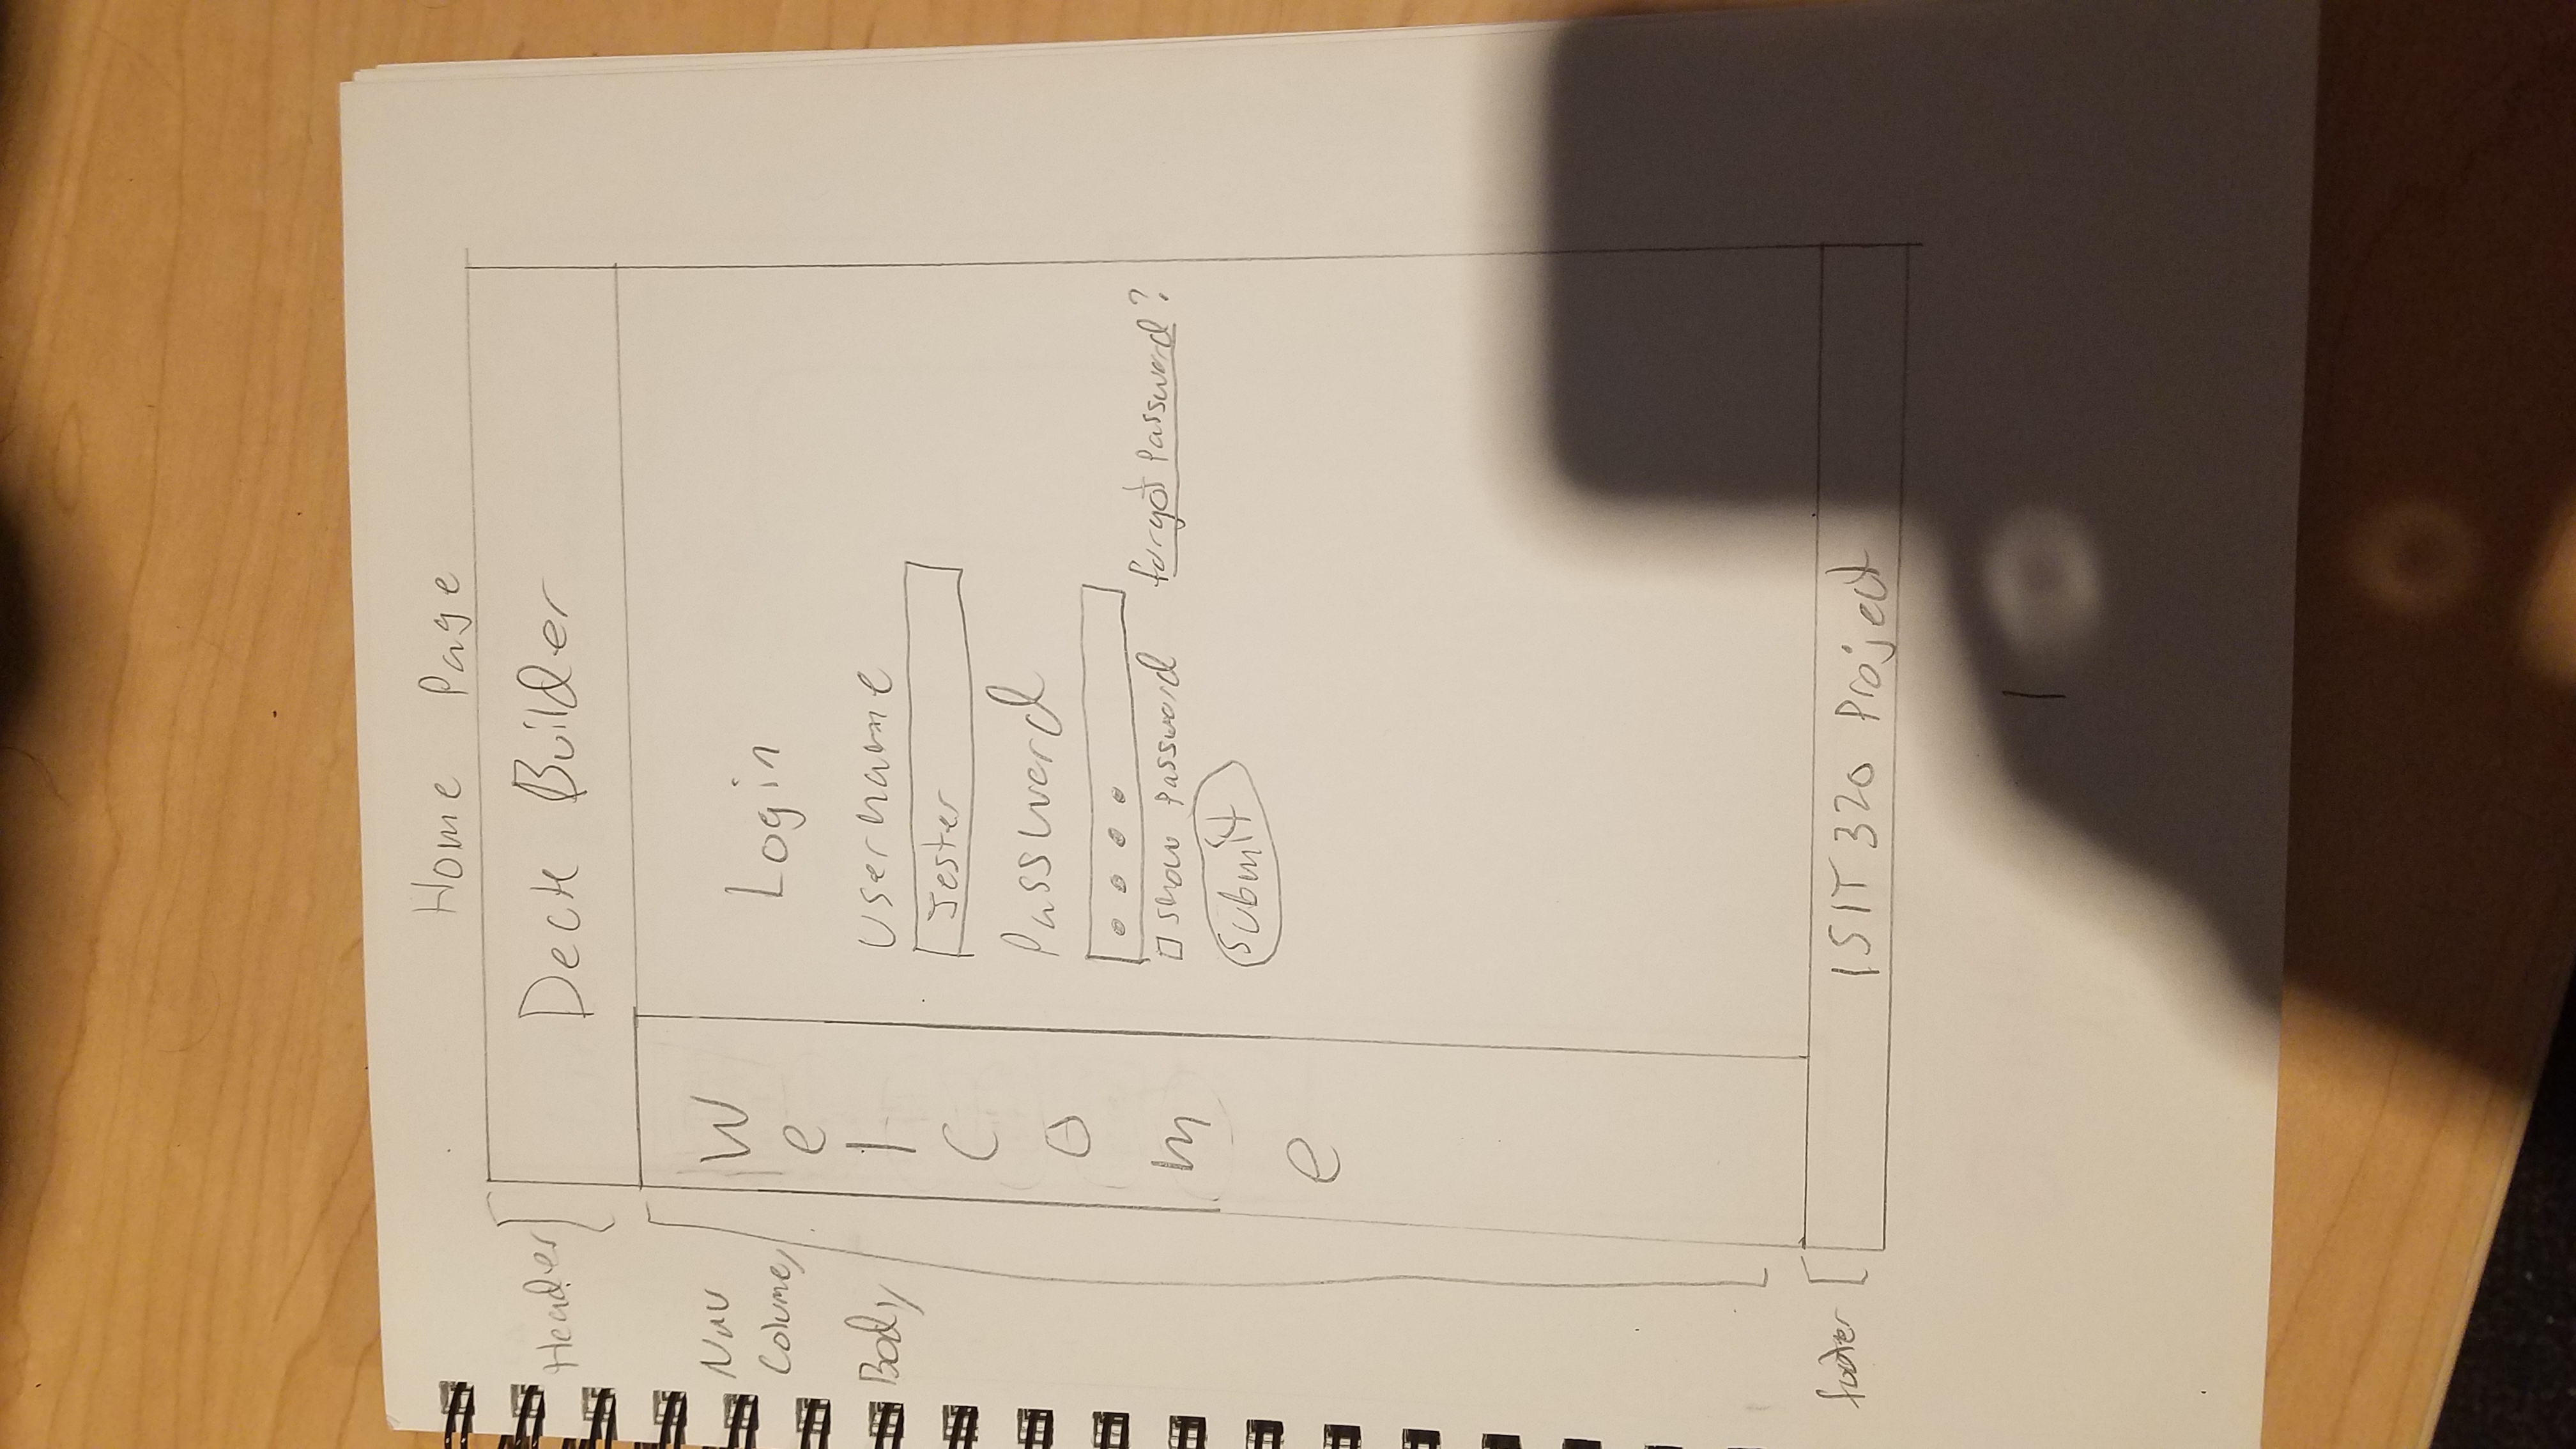 Home Page
Header
Deck Builder
Nav
Column,
Body,
W
e
l
c
o
m
e
Login
Username
Jester
Password
□ Show Password
forgot Password?
Submit
footer
ISIT 320 Project
1